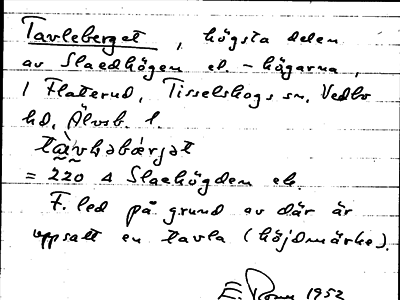 Tavleberget, högsta delen
av Slaehögen el. -högarna,
i Flatterud, Tisselskogs sn, Vedbo
hd, Älvsb. l.
= 220 Δ Slaehögden ek.
F. led på grund av där är
uppsatt en tavla (höjdmärke).
E. 1952